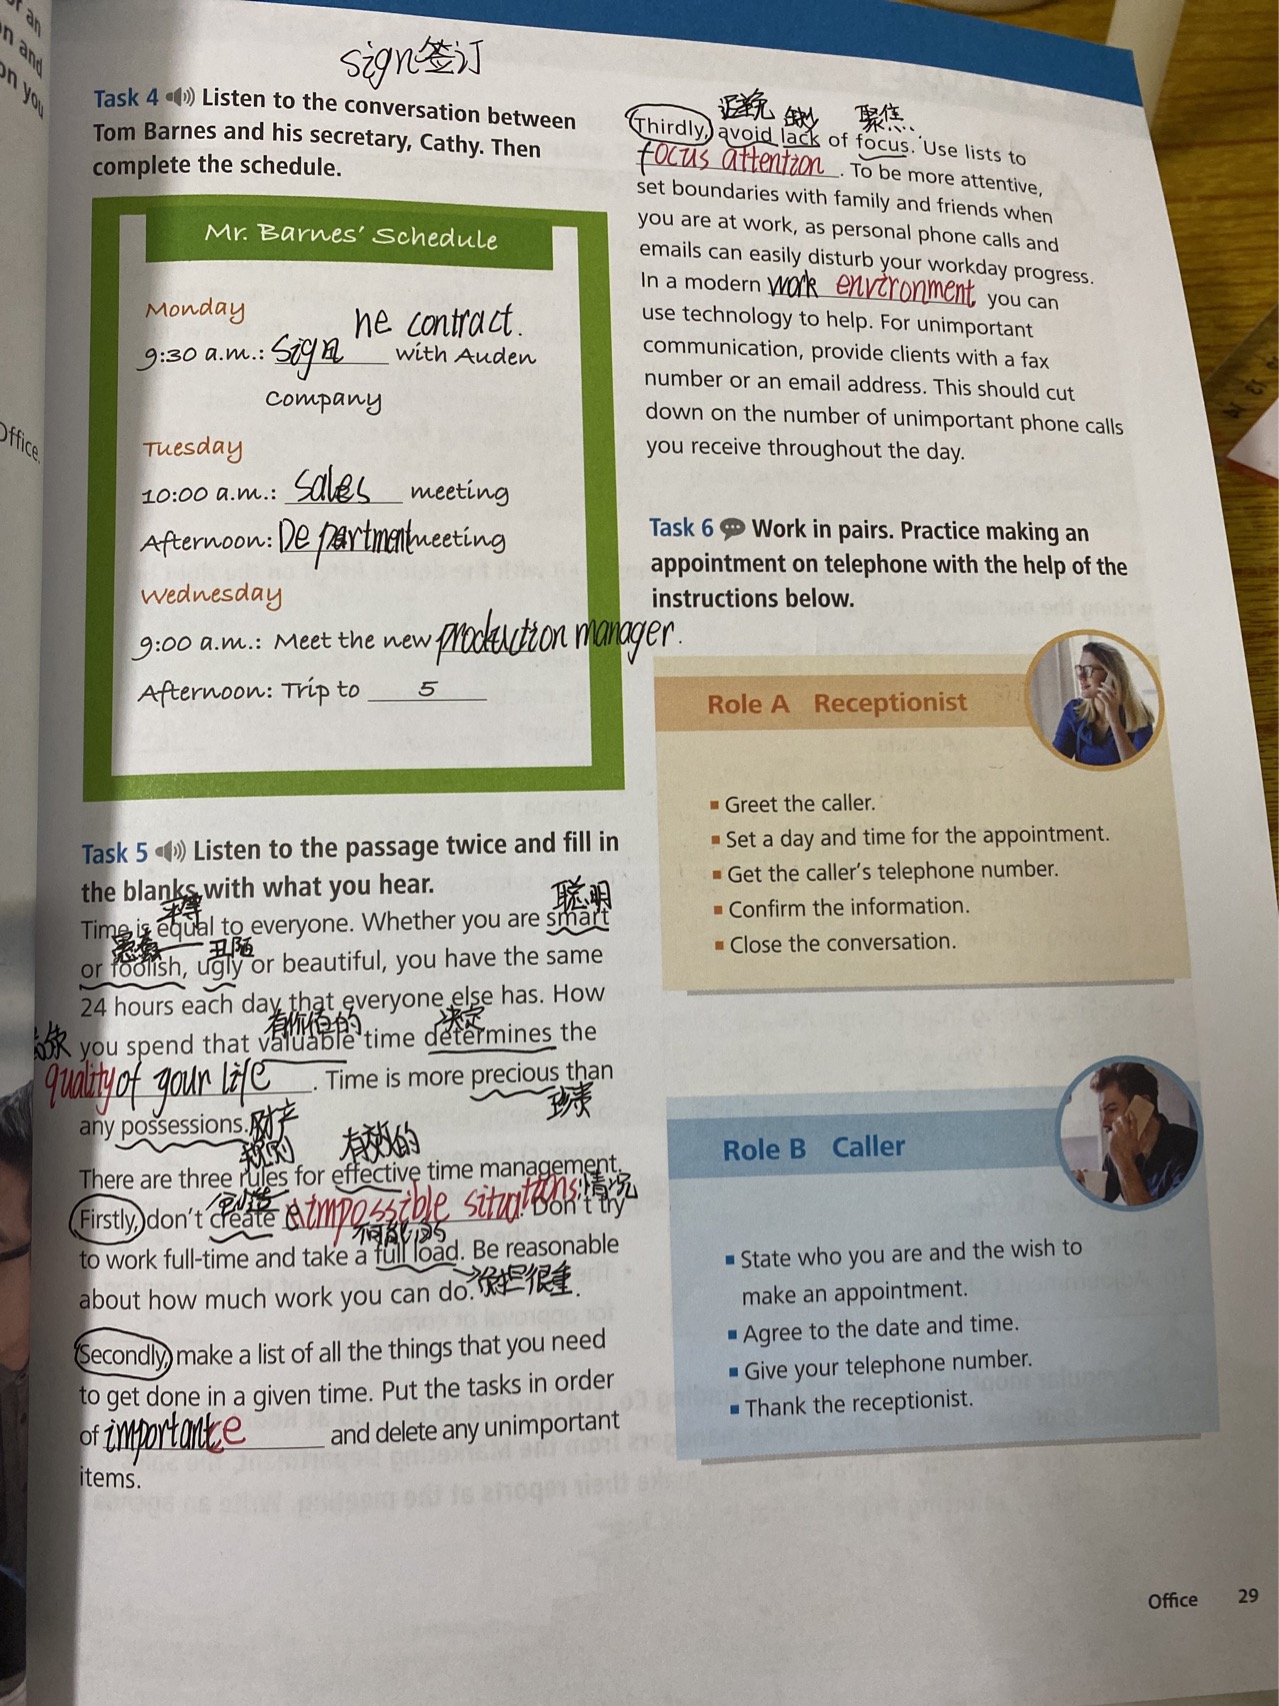 sign签订
Task 4 Listen to the conversation between
Tom Barnes and his secretary, Cathy. Then
complete the schedule.
Mr. Barnes' Schedule
Monday
he contract.
9:30 a.m.: sign with Auden
Company
Tuesday
10:00 a.m.: sales meeting
Afternoon: Department meeting
Wednesday
9:00 a.m.: Meet the new production manager.
Afternoon: Trip to 5
Task 5 Listen to the passage twice and fill in
the blanks with what you hear.
聪明
Time is equal to everyone. Whether you are smart
愚蠢 丑陋
or foolish, ugly or beautiful, you have the same
24 hours each day that everyone else has. How
有价值的 决定
you spend that valuable time determines the
quality of your life . Time is more precious than
珍贵
any possessions. 财产
规则 有效的
There are three rules for effective time management.
创造 情况
Firstly, don't create impossible situations. Don't try
to work full-time and take a full load. Be reasonable
about how much work you can do. 负担很重.
Secondly, make a list of all the things that you need
to get done in a given time. Put the tasks in order
of importance and delete any unimportant
items.
避免 缺少 聚焦.
Thirdly, avoid lack of focus. Use lists to
focus attention . To be more attentive,
set boundaries with family and friends when
you are at work, as personal phone calls and
emails can easily disturb your workday progress.
In a modern work environment, you can
use technology to help. For unimportant
communication, provide clients with a fax
number or an email address. This should cut
down on the number of unimportant phone calls
you receive throughout the day.
Task 6 Work in pairs. Practice making an
appointment on telephone with the help of the
instructions below.
Role A Receptionist
Greet the caller.
Set a day and time for the appointment.
Get the caller's telephone number.
Confirm the information.
Close the conversation.
Role B Caller
State who you are and the wish to
make an appointment.
Agree to the date and time.
Give your telephone number.
Thank the receptionist.
Office 29